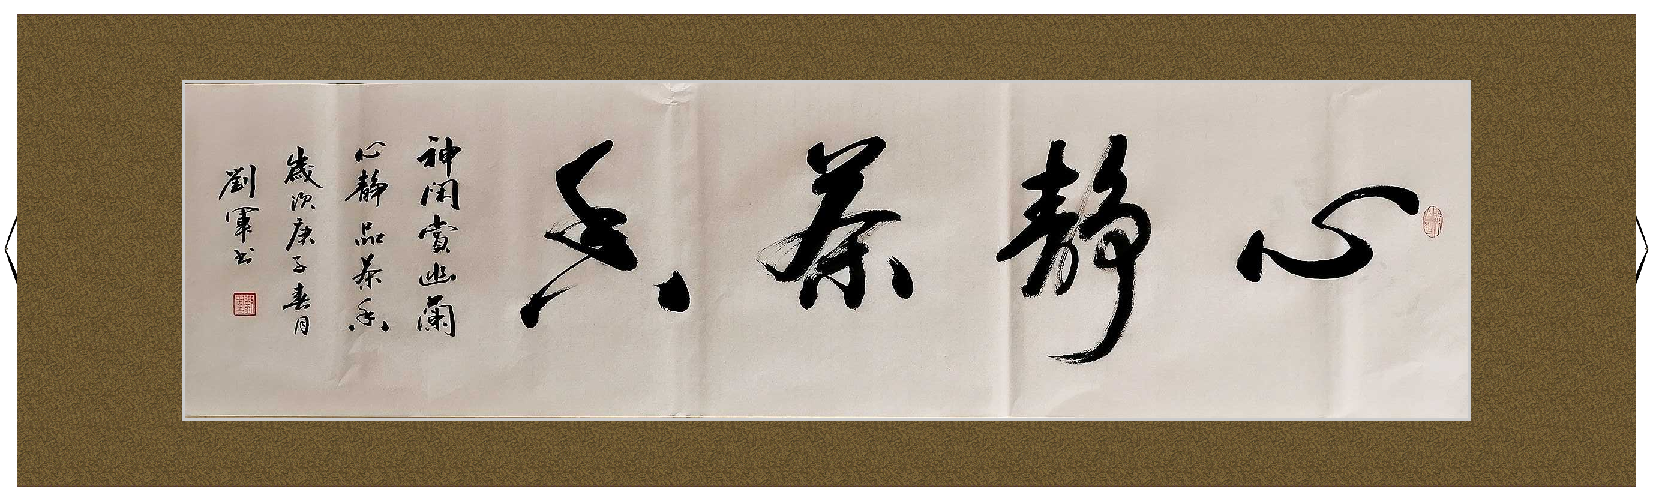 心静茶香
神闲赏幽蘭
心静品茶香
歲次庚子春月
劉軍书